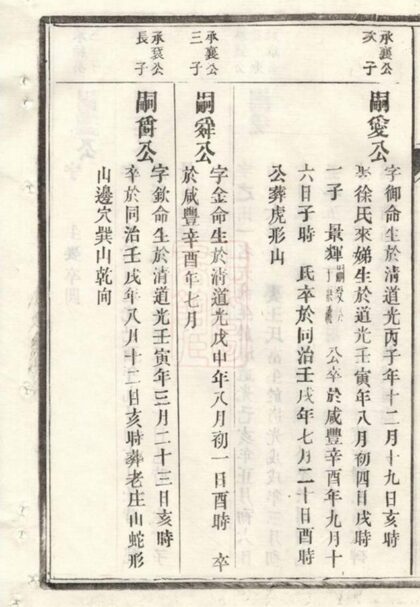 承襄公
次子
嗣愛公
字御命生於清道光丙子年十二月十九日亥時
徐氏來娣生於道光壬寅年八月初四日戌時
一子 景輝 公卒於咸豐辛酉年九月十
六日子時 氏卒於同治壬戌年七月二十日酉時
公葬虎形山
承襄公
三子
嗣舜公
字金命生於清道光戊申年八月初一日酉時 卒
於咸豐辛酉年七月
承襄公
長子
公
字欽命生於清道光壬寅年三月二十三日亥時
卒於同治壬戌年八月十二日亥時葬老庄山蛇形
山邊穴巽山乾向